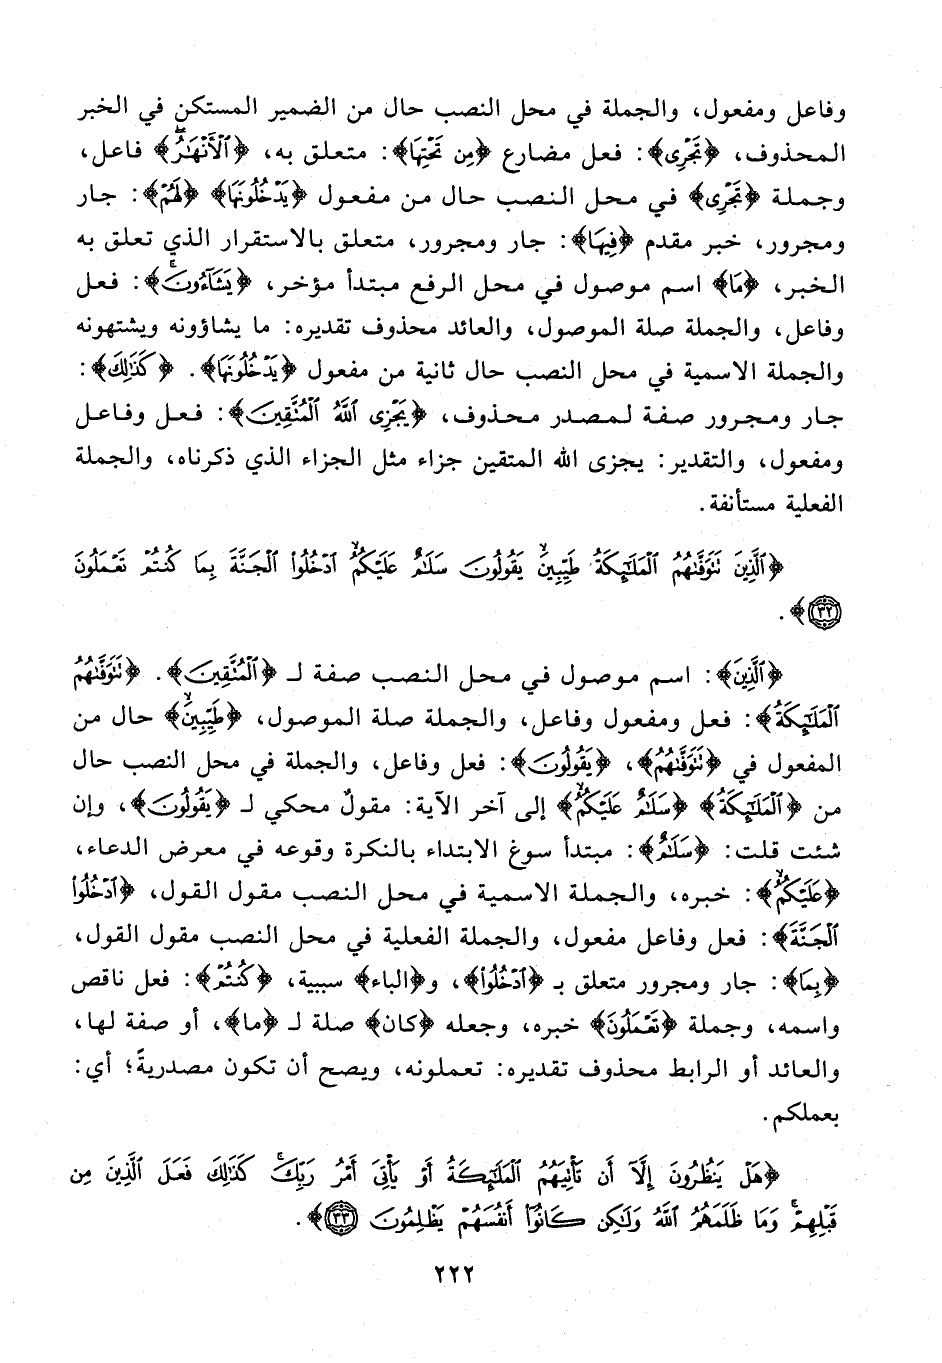 وفاعل ومفعول، والجملة في محل النصب حال من الضمير المستكن في الخبر
المحذوف، ﴿تَجْرِى﴾: فعل مضارع ﴿مِن تَحْتِهَا﴾: متعلق به، ﴿ٱلْأَنْهَٰرُ﴾ فاعل،
وجملة ﴿تَجْرِى﴾ في محل النصب حال من مفعول ﴿يَدْخُلُونَهَا﴾ ﴿لَهُمْ﴾: جار
ومجرور، خبر مقدم ﴿فِيهَا﴾: جار ومجرور، متعلق بالاستقرار الذي تعلق به
الخبر، ﴿مَا﴾ اسم موصول في محل الرفع مبتدأ مؤخر، ﴿يَشَآءُونَ﴾: فعل
وفاعل، والجملة صلة الموصول، والعائد محذوف تقديره: ما يشاؤونه ويشتهونه
والجملة الاسمية في محل النصب حال ثانية من مفعول ﴿يَدْخُلُونَهَا﴾. ﴿كَذَٰلِكَ﴾:
جار ومجرور صفة لمصدر محذوف، ﴿يَجْزِى ٱللَّهُ ٱلْمُتَّقِينَ﴾: فعل وفاعل
ومفعول، والتقدير: يجزى الله المتقين جزاء مثل الجزاء الذي ذكرناه، والجملة
الفعلية مستأنفة.
﴿ٱلَّذِينَ تَتَوَفَّىٰهُمُ ٱلْمَلَٰٓئِكَةُ طَيِّبِينَ ۙ يَقُولُونَ سَلَٰمٌ عَلَيْكُمُ ۙ ٱدْخُلُوا۟ ٱلْجَنَّةَ بِمَا كُنتُمْ تَعْمَلُونَ
٣٢﴾.
﴿ٱلَّذِينَ﴾: اسم موصول في محل النصب صفة لـ ﴿ٱلْمُتَّقِينَ﴾. ﴿تَتَوَفَّىٰهُمُ
ٱلْمَلَٰٓئِكَةُ﴾: فعل ومفعول وفاعل، والجملة صلة الموصول، ﴿طَيِّبِينَ ۙ﴾ حال من
المفعول في ﴿تَتَوَفَّىٰهُمُ﴾، ﴿يَقُولُونَ﴾: فعل وفاعل، والجملة في محل النصب حال
من ﴿ٱلْمَلَٰٓئِكَةُ﴾ ﴿سَلَٰمٌ عَلَيْكُمُ ۙ﴾ إلى آخر الآية: مقولٌ محكي لـ ﴿يَقُولُونَ﴾، وإن
شئت قلت: ﴿سَلَٰمٌ﴾: مبتدأ سوغ الابتداء بالنكرة وقوعه في معرض الدعاء،
﴿عَلَيْكُمُ ۙ﴾: خبره، والجملة الاسمية في محل النصب مقول القول، ﴿ٱدْخُلُوا۟
ٱلْجَنَّةَ﴾: فعل وفاعل مفعول، والجملة الفعلية في محل النصب مقول القول،
﴿بِمَا﴾: جار ومجرور متعلق بـ ﴿ٱدْخُلُوا۟﴾، و﴿الباء﴾ سببية، ﴿كُنتُمْ﴾: فعل ناقص
واسمه، وجملة ﴿تَعْمَلُونَ﴾ خبره، وجعله ﴿كان﴾ صلة لـ ﴿ما﴾، أو صفة لها،
والعائد أو الرابط محذوف تقديره: تعملونه، ويصح أن تكون مصدريةً؛ أي:
بعملكم.
﴿هَلْ يَنظُرُونَ إِلَّآ أَن تَأْتِيَهُمُ ٱلْمَلَٰٓئِكَةُ أَوْ يَأْتِىَ أَمْرُ رَبِّكَ ۚ كَذَٰلِكَ فَعَلَ ٱلَّذِينَ مِن
قَبْلِهِمْ ۚ وَمَا ظَلَمَهُمُ ٱللَّهُ وَلَٰكِن كَانُوٓا۟ أَنفُسَهُمْ يَظْلِمُونَ ٣٣﴾.
٢٢٢